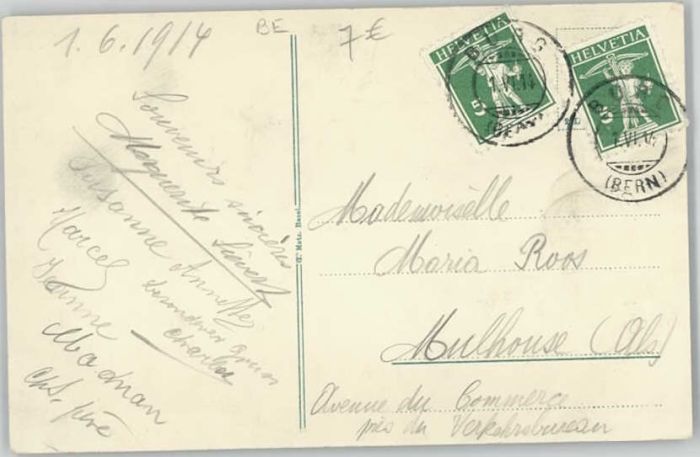 1.6.1914
BE
7€
HELVETIA
5
1.VI.14
(BERN)
HELVETIA
5
VI.14
(BERN)
Souvenirs sincères
Marguerite
Susanne Annette
Marcel
Jeanne
Charles
Maman
père
G. Metz, Basel
Mademoiselle
Maria Roos
Mulhouse (Als)
Avenue du Commerce
près du Verkehrsbureau